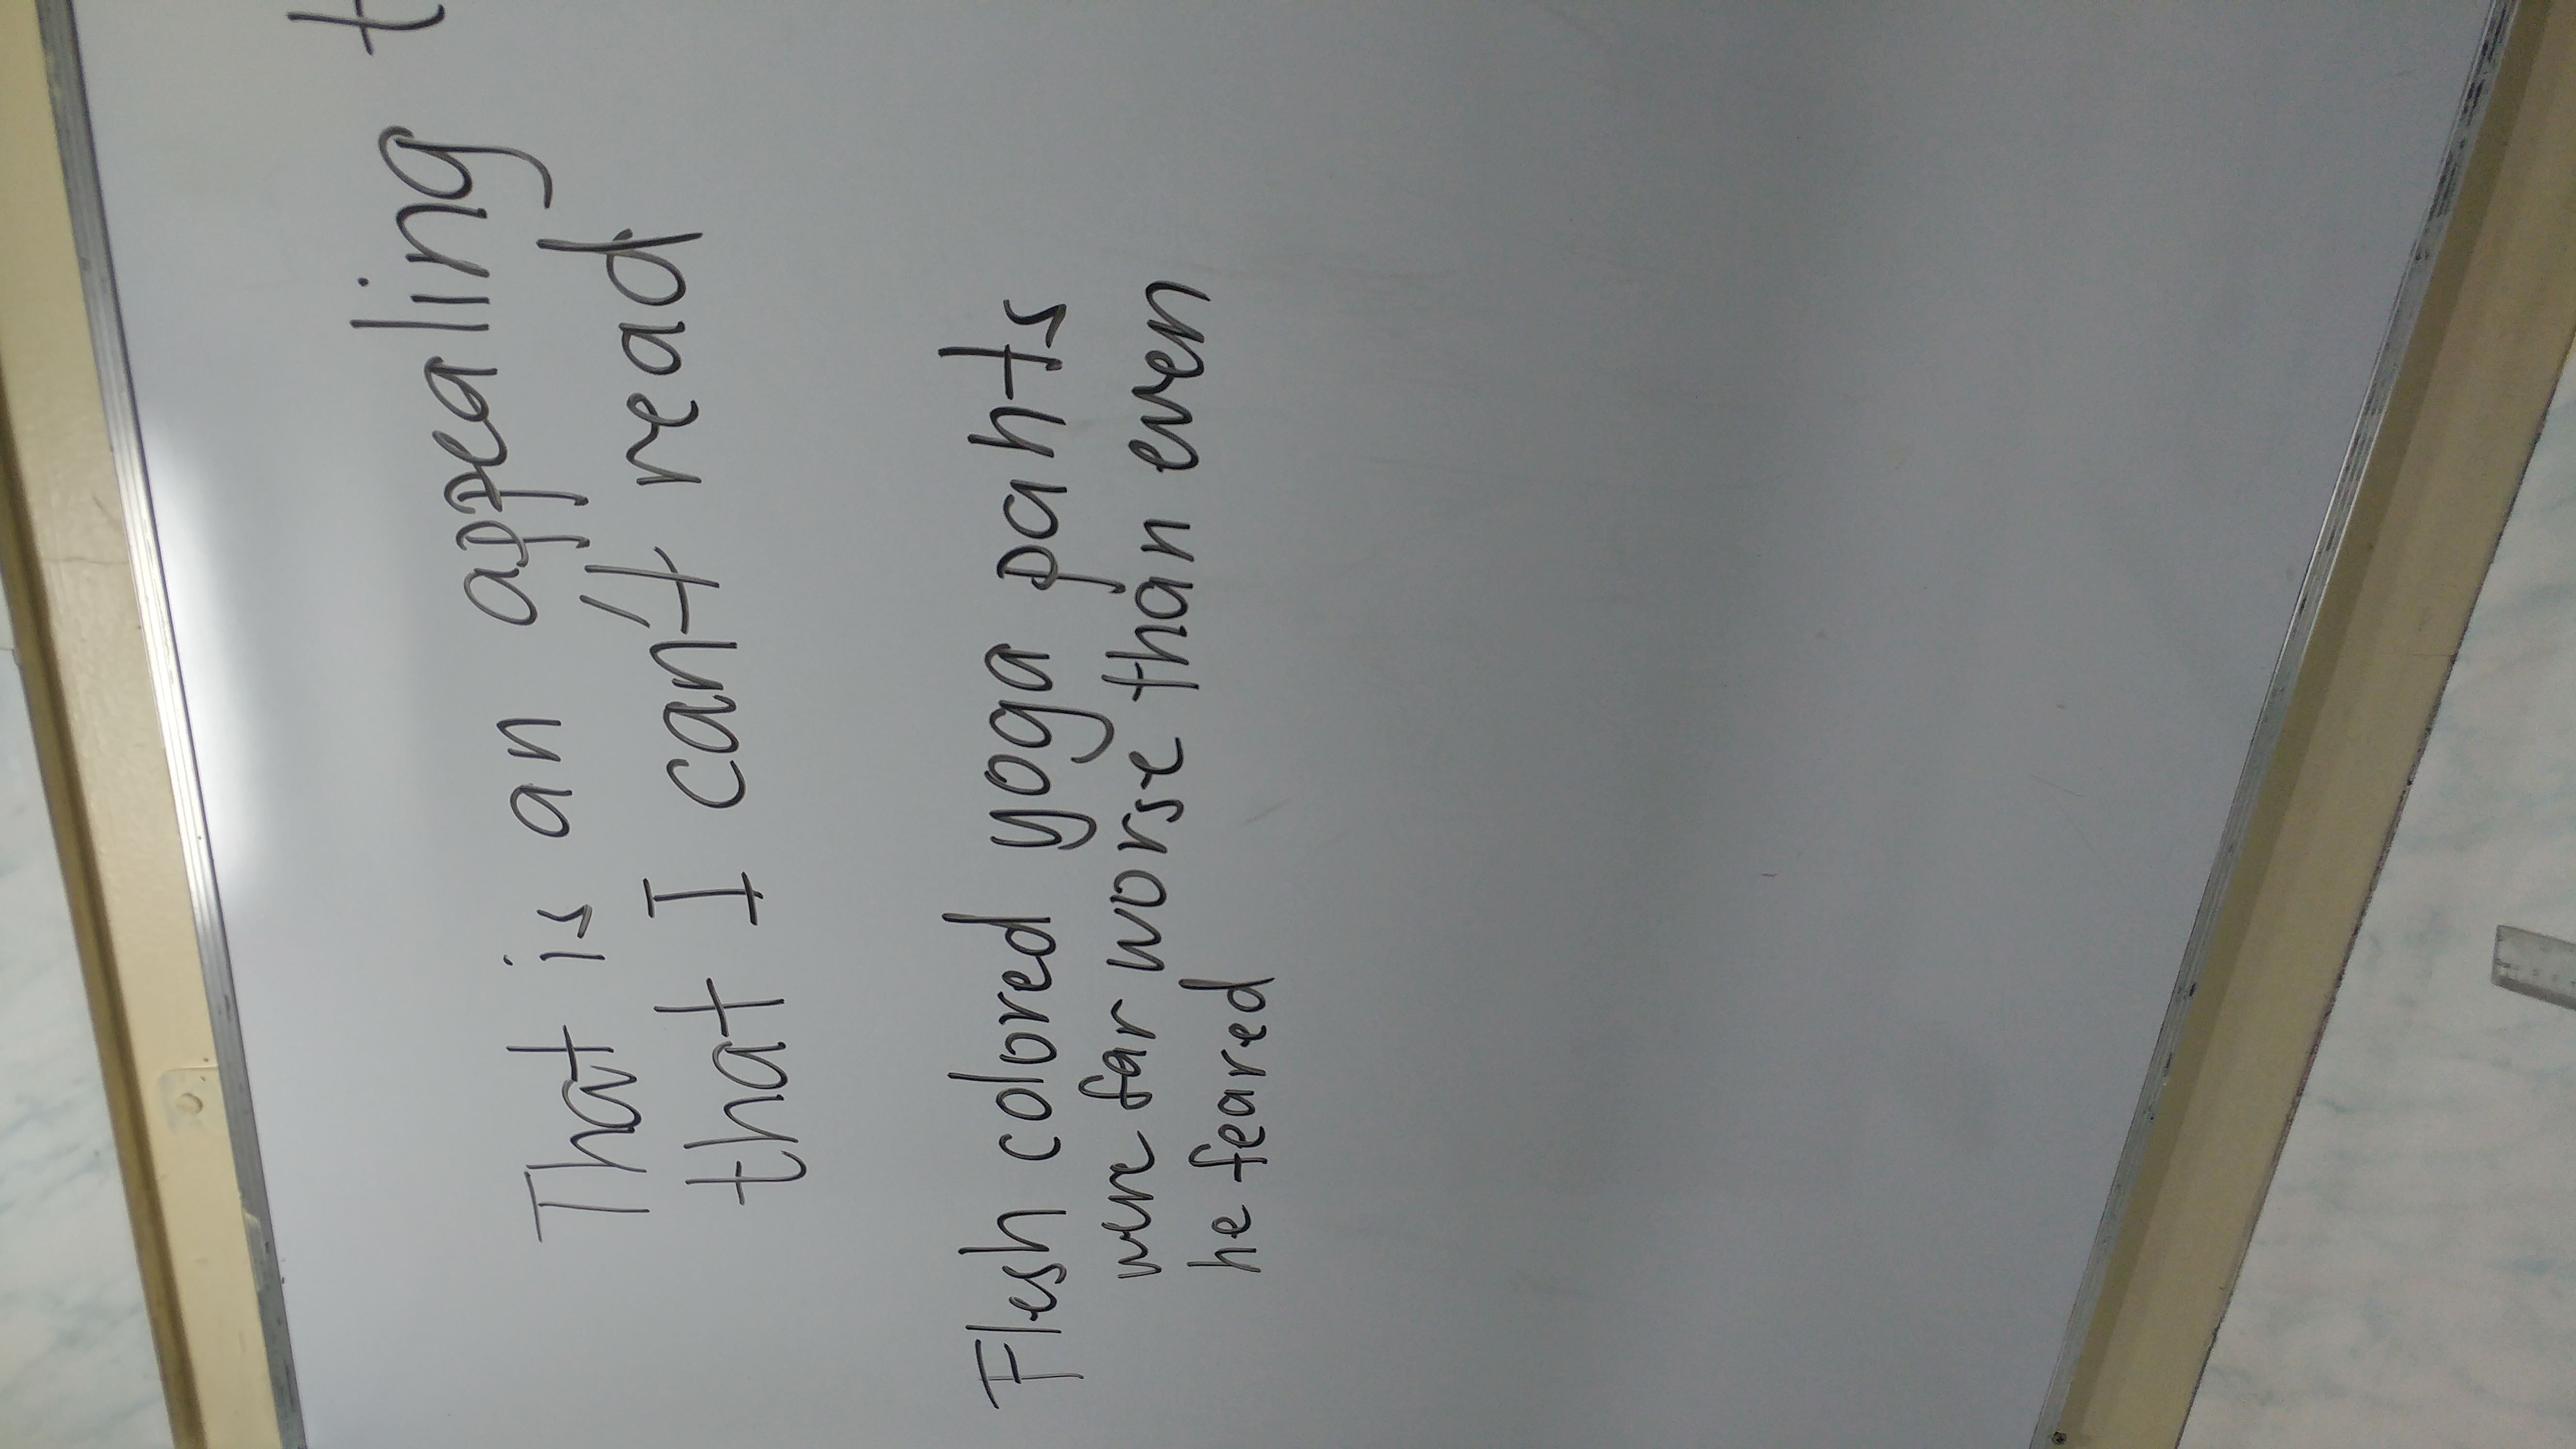 That is an appealing
that I can't read
Flesh colored yoga pants
were far worse than even
he feared